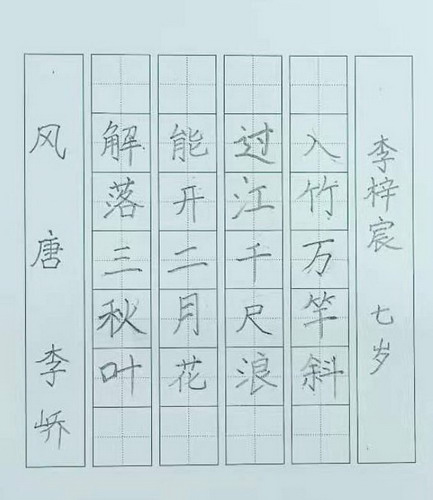 风 唐 李峤
解落三秋叶
能开二月花
过江千尺浪
入竹万竿斜
李梓宸 七岁